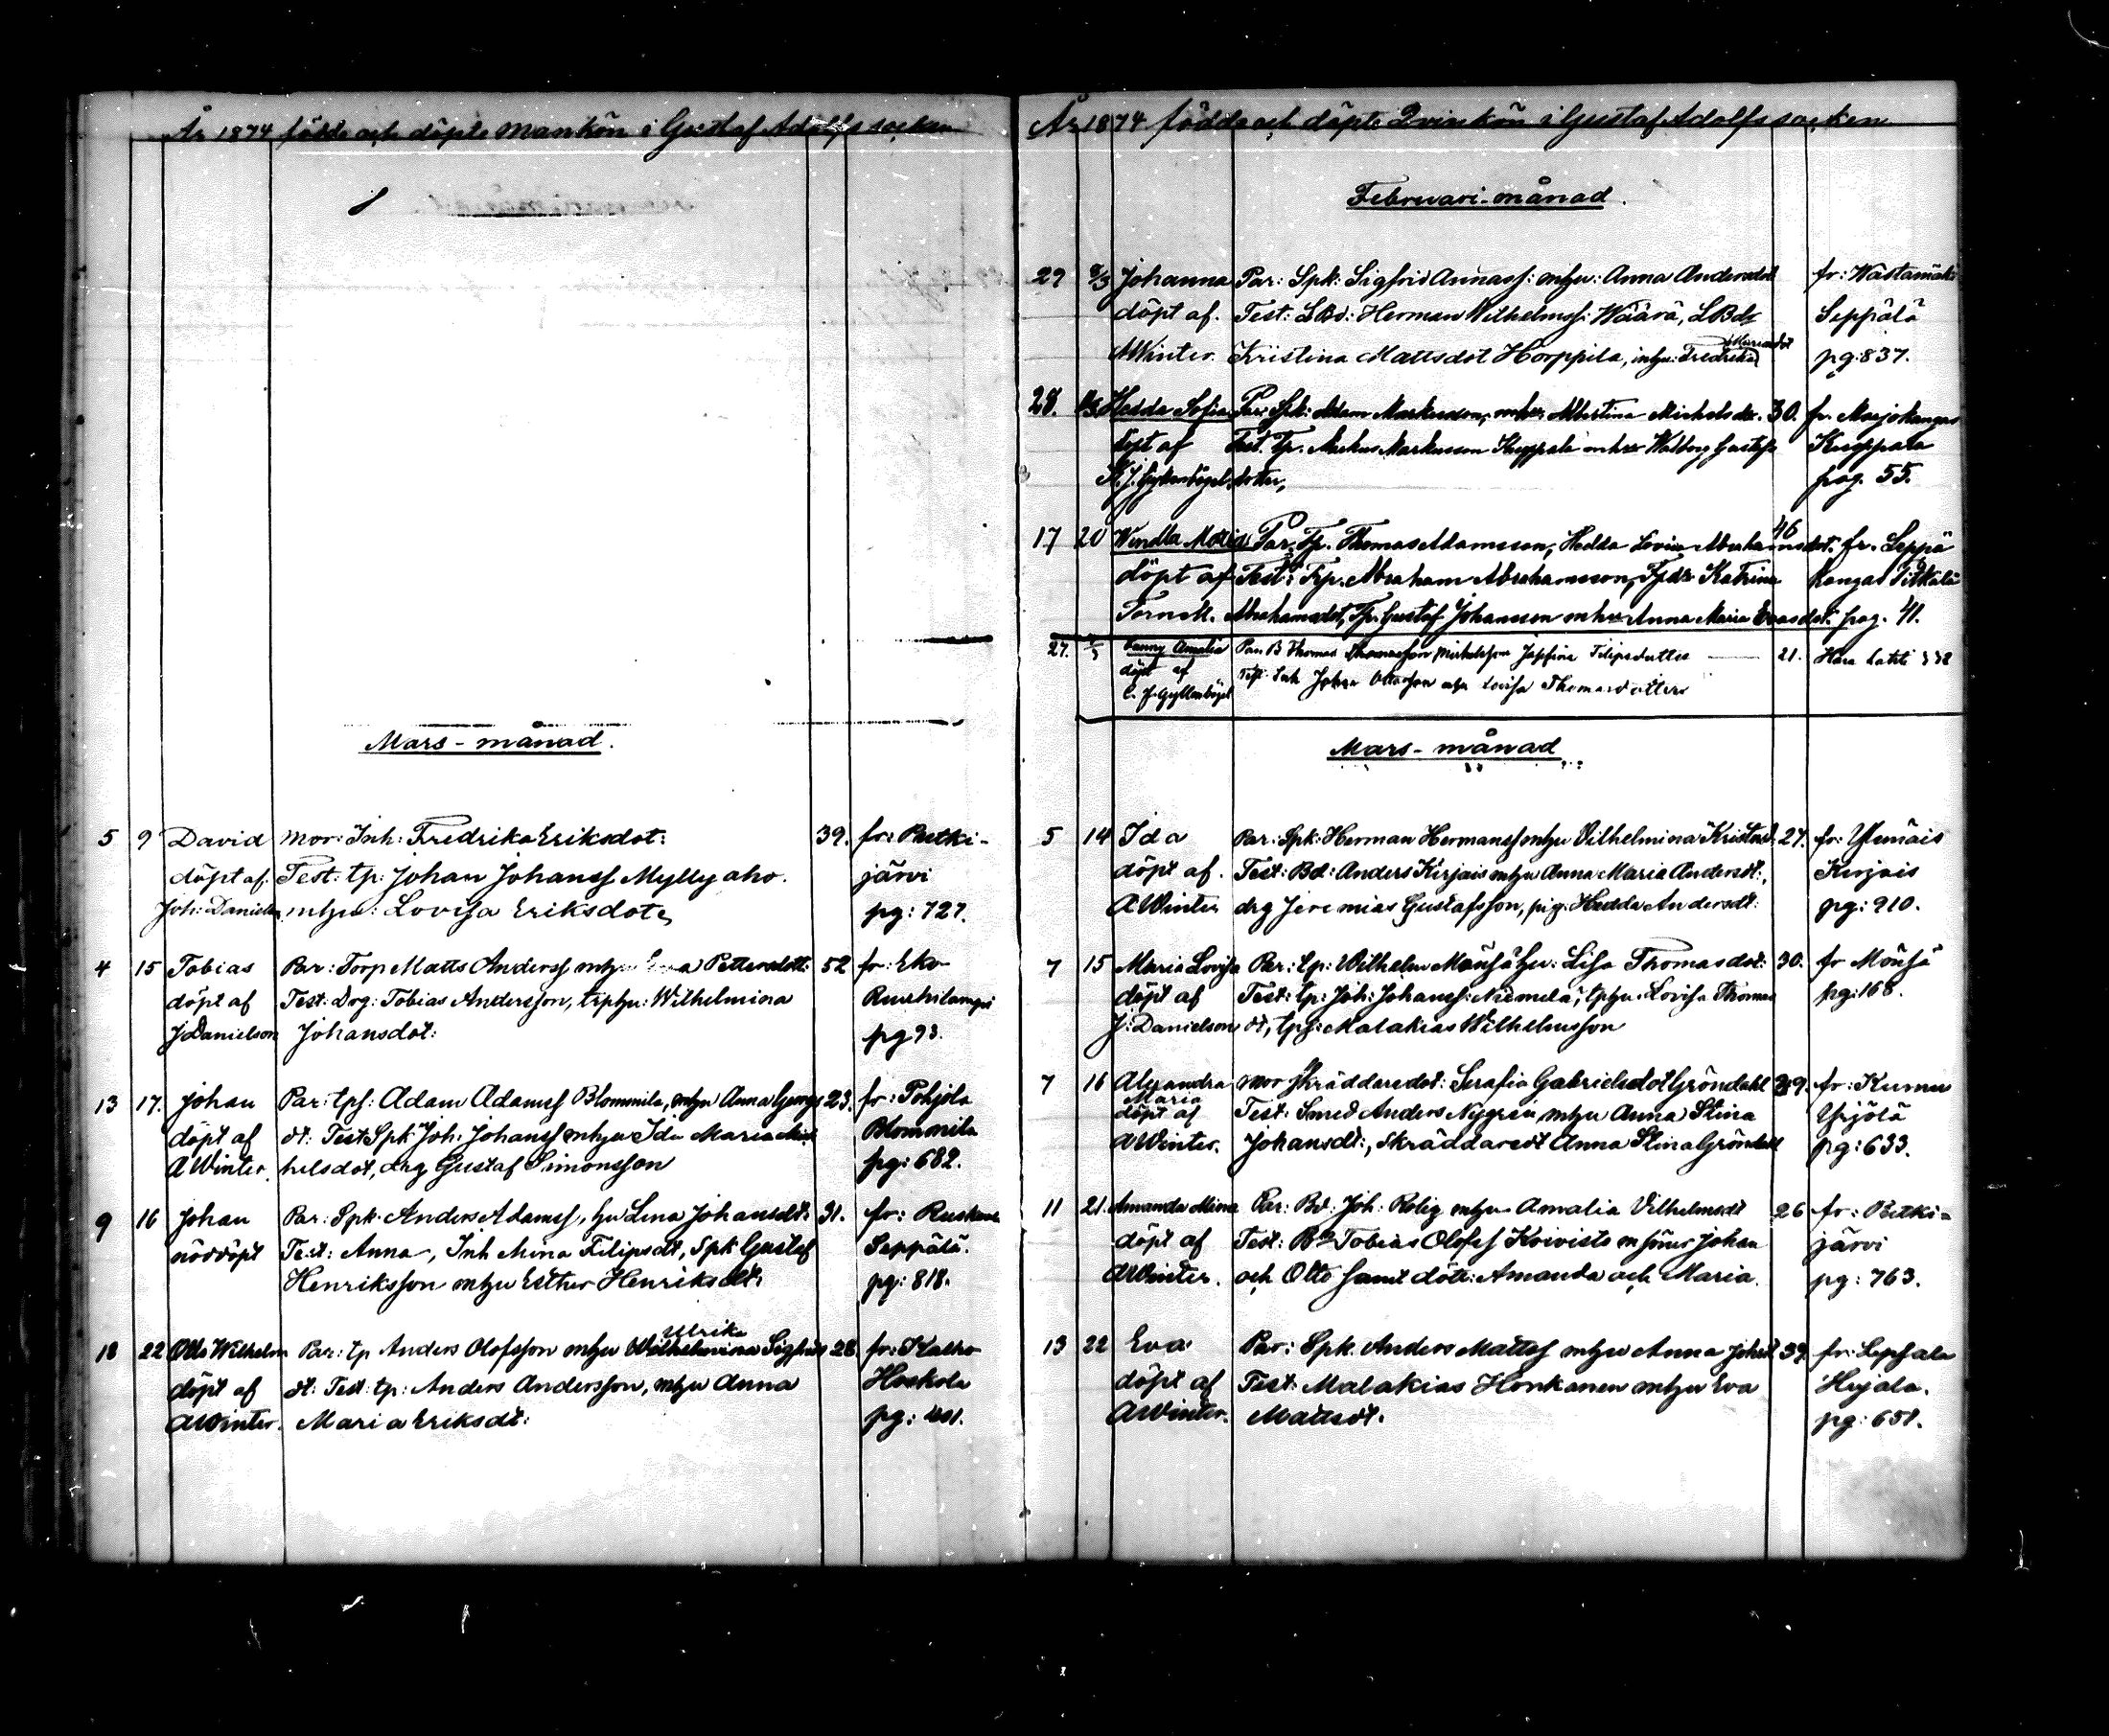 År 1874 födde och döpte Mankön i Gustaf Adolfs socken
Mars-månad.
5 9 David Mor: Inh: Fredrika Eriksdot: 39. fr: Putki-
döpt af. Test: tp: Johan Johanss Myllyaho. järvi
Joh: Danielson mhu: Lovisa Eriksdotr pg: 727.
4 15 Tobias Par: Torp Matts Anderss mhu Petersdott: 52 fr: Eko
döpt af Test: Drg: Tobias Andersson, tphu: Wilhelmina
J Danielson Johansdot: pg 93.
13 17. Johan Par: tps: Adam Adamss Blommila, mhu Anna Georgs 23. fr: Pohjola
döpt af dt: Test Spk Joh: Johanss mhu Ida Maria Mik Blommila
A Winter. helsdot, drg Gustaf Simonsson pg: 682.
9 16 Johan Par: Spk. Anders Adamss, hu Lena Johansdt: 31. fr:
nöddöpt Test: Anna, Inh Mina Filipsdt, Spk Gustaf Seppälä.
Henriksson mhu Esther Henriksdt: pg: 818.
18 22 Otto Wilhelm Par: tp Anders Olofsson mhu Ulrika Wilhelmina Sigfrids 28 fr: Kalho
döpt af dt: Test: tp: Anders Andersson, mhu Anna Koskela
A Winter. Maria Eriksdt: pg: 401.
År 1874 födde och döpte Qvinkön i Gustaf Adolfs socken
Februari-månad.
27 8/3 Johanna Par: Spk: Sigfrid Annass: mhu: Anna Andersdot fr: Wästamäki
döpt af. Test: LBd: Herman Wilhelmss: Wäärä, LBdr Seppälä
A Winter. Kristina Mattsdot Horppila, inhu: Fredrika Mariasdot pg: 837.
28. Hedda Sofia Par: Spk: Adam Markusson, mhu Albertina Michelsdr. 30. fr. Marjokangas
döpt af Test. Tp. Markus Markusson Kuppala mhu Walborg Gustafs Kuppala
K. J. Gyllenbögel. dotter, pag. 55.
17 20 Wendla Maria Par. Tp. Thomas Adamsson, Hedda Lovisa Abrahamsdot. 46 fr. Seppä
döpt af Test: Tp. Abraham Abrahamsson, Tpdr Katrina kangas Pitkälä
Abrahamsdot, Tp. Gustaf Johansson mhu Anna Maria Evasdot. pag. 41.
27. Fanny Amalia Par: B Thomas Thomasson Mickelsson Josefina Filipsdotter 21. Hara Lahti 338
döpt af Test: Inh Johan Ottosson och Lovisa Thomasdotter
C. J. Gyllenbögel
Mars-månad
5 14 Ida Par: Spk: Herman Hermanss mhu Vilhelmina Kristsd: 27. fr:
döpt af. Test: Bd: Anders Kirjais mhu Anna Maria Andersdt:, Kirjais
A Winter drg Jeremias Gustafsson, pig: Hedda Andersdt: pg: 910.
7 15 Maria Lovisa Par: Lp: Wilhelm Mönjä hu: Lisa Thomasdot: 30. fr Mönjä
döpt af Test: tp: Joh: Johanss: Niemelä, tphu: Lovisa Thomas pg: 168.
J: Danielson dt, tps: Malakias Wilhelmsson
7 16 Alexandra Maria Mor Skräddaredot: Serafia Gabrielsdot Gröndahl 39. fr: Kumu
döpt af Test: Smed Anders Nygren, mhu Anna Stina Yrjölä
A Winter. Johansdt:, Skräddaredt Anna Stina Gröndahl pg: 633.
11 21. Amanda Mina Par: Bd: Joh: Rolig mhu Amalia Vilhelmsdt 26 fr: Putki-
döpt af Test: Bd Tobias Olofss Koivisto m söner Johan järvi
A Winter. och Otto samt dött: Amanda och Maria. pg: 763.
13 22 Eva Par: Spk. Anders Mattss mhu Anna Johsdt 39 fr: Lepsala
döpt af Test: Malakias Honkanen mhu Eva Hujala.
A Winter. Mattsdt. pg: 651.